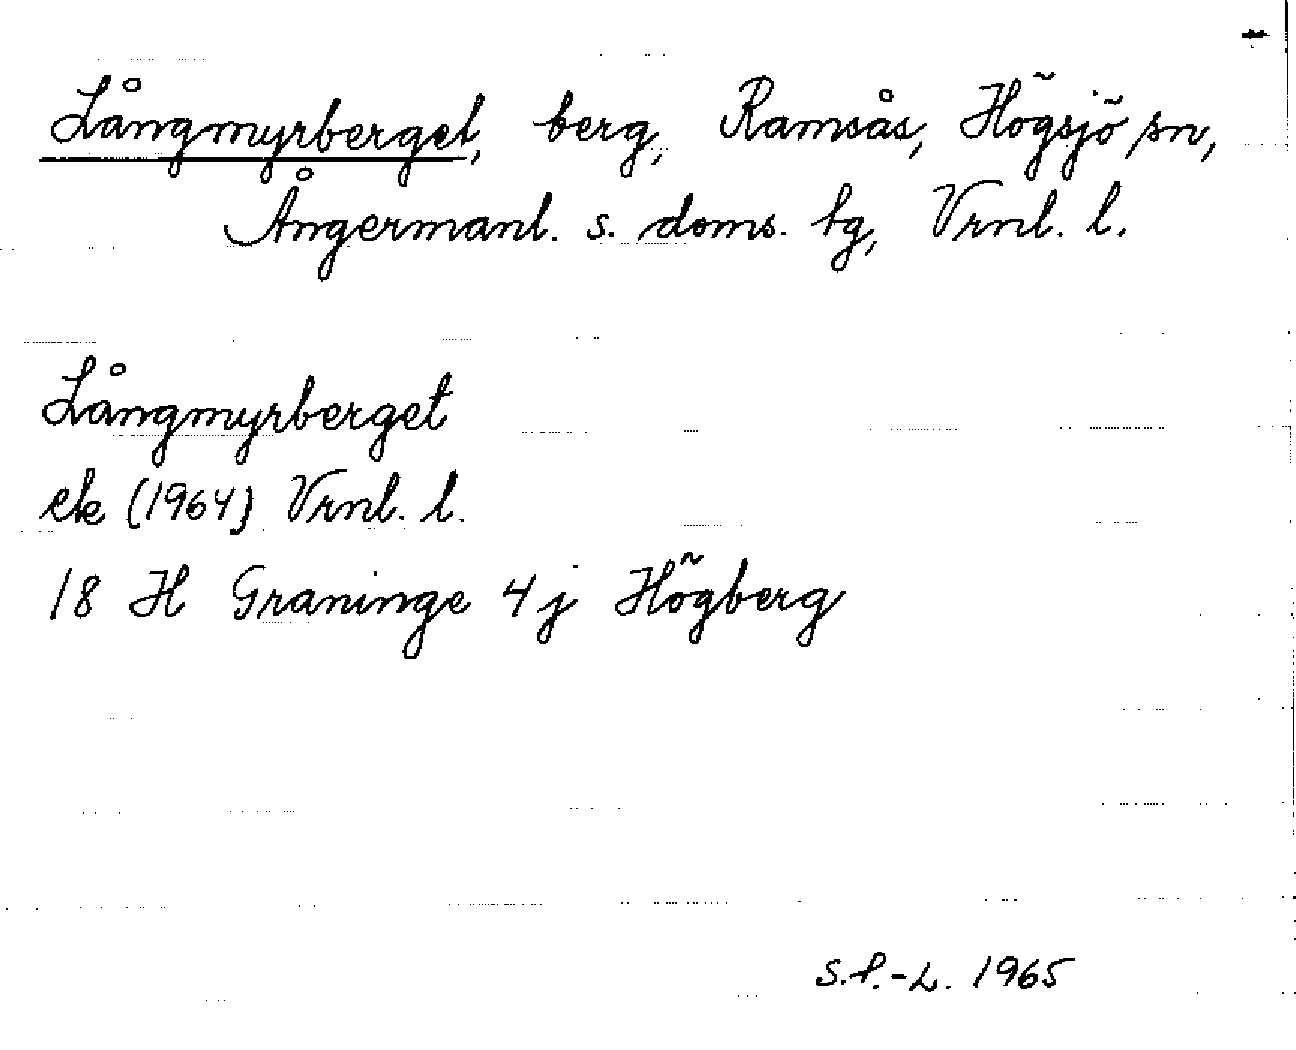 Långmyrberget, berg, Ramsås, Högsjö sn,
Ångermanl. s. doms. tg, Vrnl. l.
Långmyrberget
ek (1964) Vrnl. l.
18 H Graninge 4 j Högberg
S.P.-L. 1965